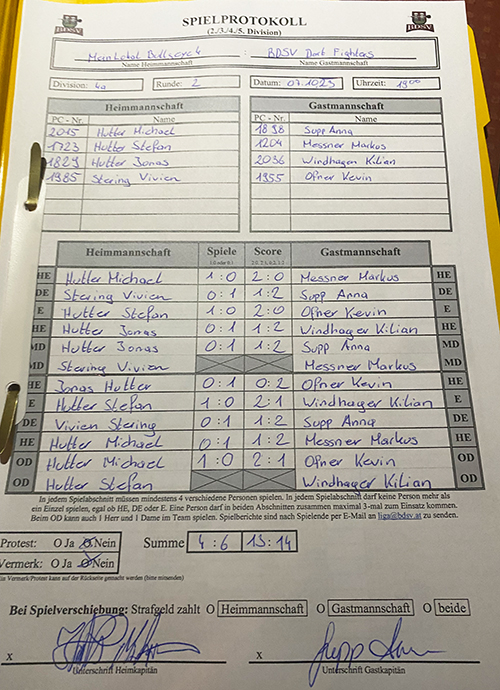 SPIELPROTOKOLL
(2./3./4./5. Division)
BDSV
BDSV
: BDSV Dart Fighters
Name Heimmannschaft Name Gastmannschaft
Division: 4a Runde: 2 Datum: 07.10.23 Uhrzeit: 19⁰⁰
Heimmannschaft Gastmannschaft
PC - Nr. Name PC - Nr. Name
2015 Hutter Michael 1898 Supp Anna
1723 Hutter Stefan 1204 Messner Markus
1829 Hutter Jonas 2036 Windhager Kilian
1985 Stering Vivien 1955 Ofner Kevin
Heimmannschaft Spiele Score Gastmannschaft
HE Hutter Michael 1:0 2:0 Messner Markus HE
DE Stering Vivien 0:1 1:2 Supp Anna DE
E Hutter Stefan 1:0 2:0 Ofner Kevin E
HE Hutter Jonas 0:1 1:2 Windhager Kilian HE
MD Hutter Jonas 0:1 1:2 Supp Anna MD
MD Stering Vivien Messner Markus MD
HE Jonas Hutter 0:1 0:2 Ofner Kevin HE
E Hutter Stefan 1:0 2:1 Windhager Kilian E
DE Vivien Stering 0:1 1:2 Supp Anna DE
HE Hutter Michael 0:1 1:2 Messner Markus HE
OD Hutter Michael 1:0 2:1 Ofner Kevin OD
OD Hutter Stefan Windhager Kilian OD
In jedem Spielabschnitt müssen mindestens 4 verschiedene Personen spielen. In jedem Spielabschnitt darf keine Person mehr als
ein Einzel spielen, egal ob HE, DE oder E. Eine Person darf in beiden Abschnitten zusammen maximal 3-mal zum Einsatz kommen.
Beim OD kann auch 1 Herr und 1 Dame im Team spielen. Spielberichte sind nach Spielende per E-Mail an liga@bdsv.at zu senden.
Protest: O Ja O Nein Summe 4:6 13:14
Vermerk: O Ja O Nein
Ein Vermerk/Protest kann auf der Rückseite gemacht werden (bitte mitsenden)
Bei Spielverschiebung: Strafgeld zahlt O Heimmannschaft O Gastmannschaft O beide
x x Supp Anna
Unterschrift Heimkapitän Unterschrift Gastkapitän